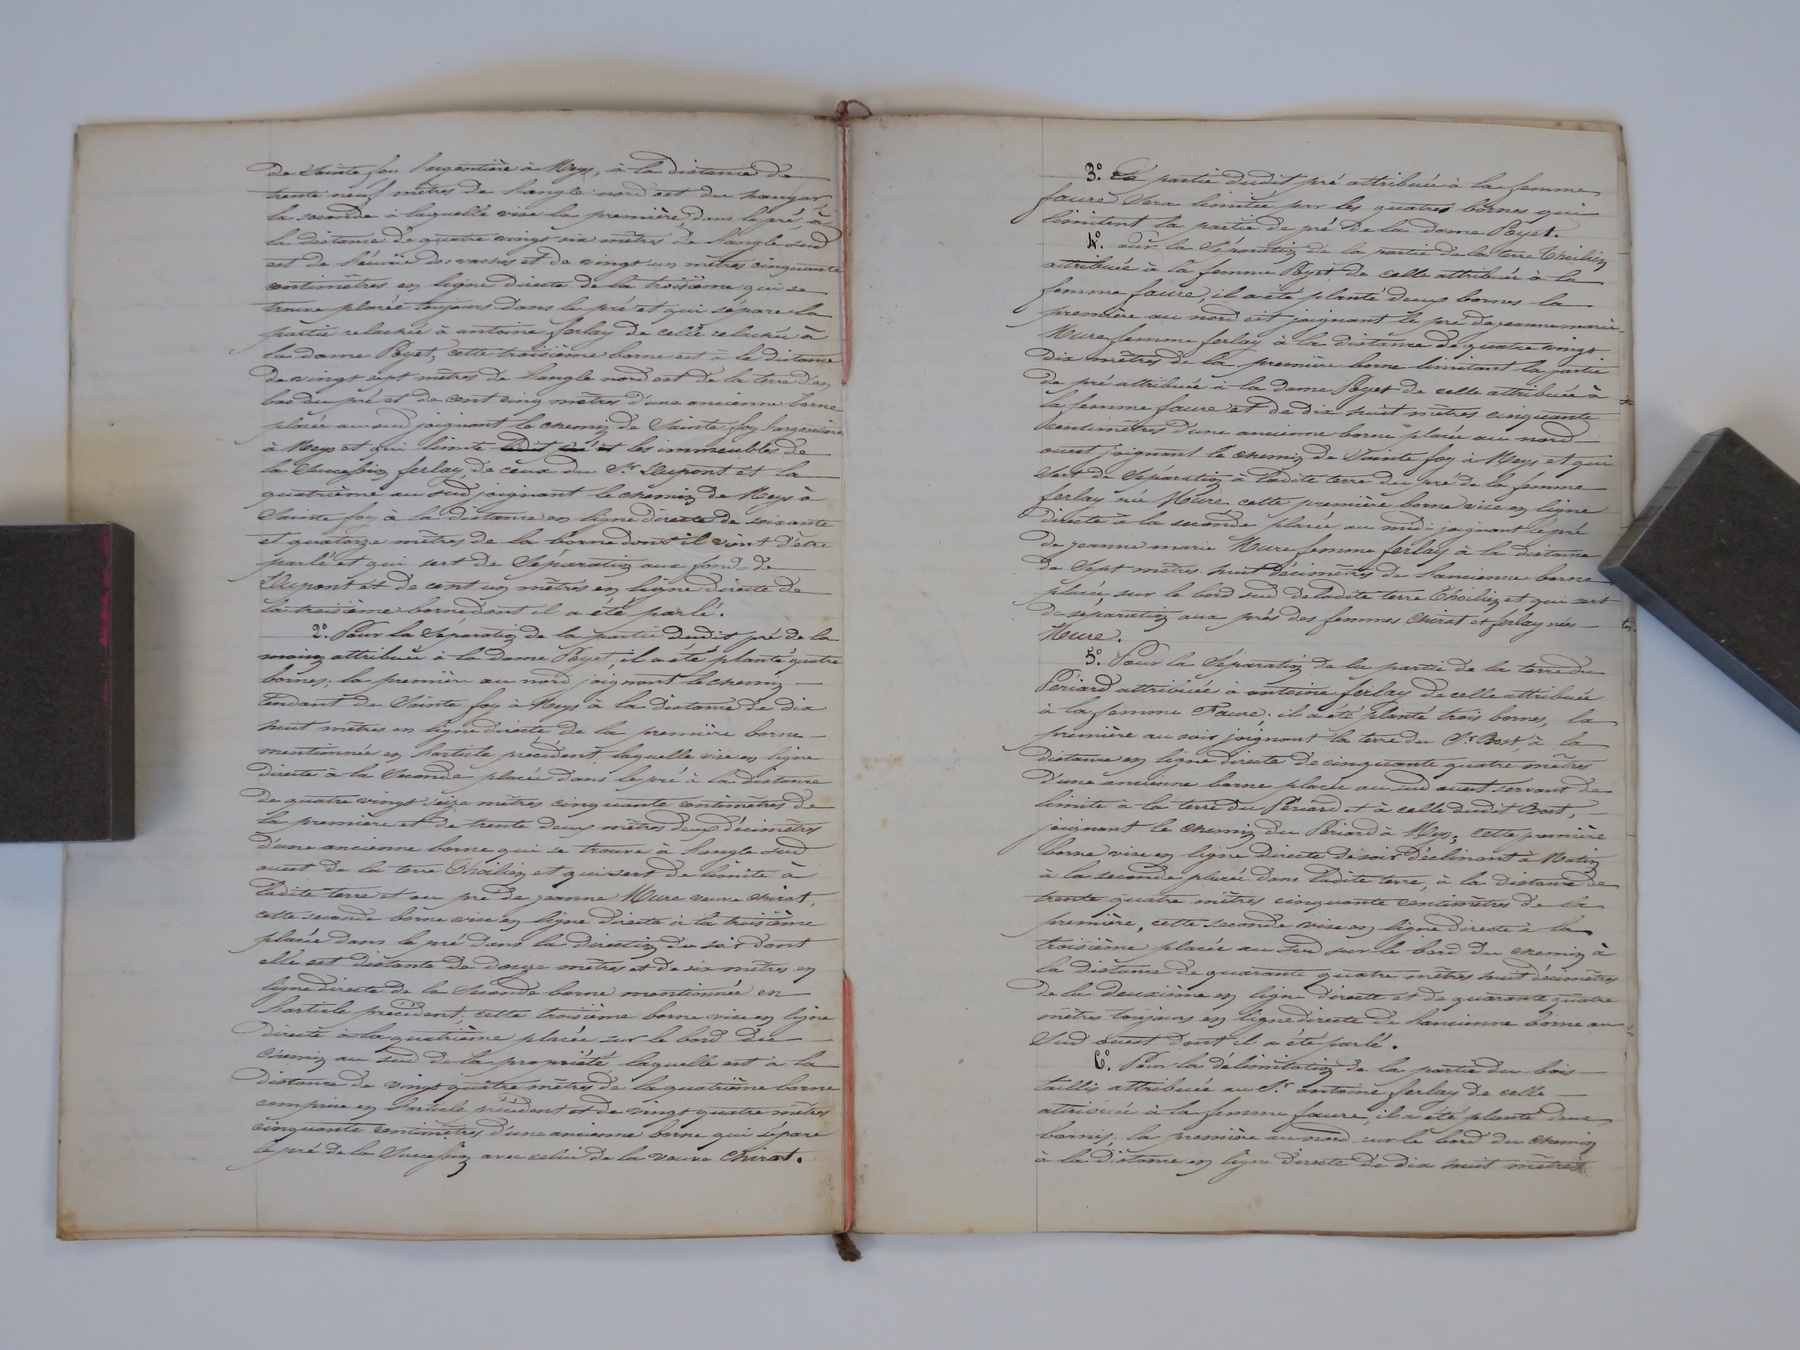 de Sainte foy l'argentière à Meys, à la distance de
trente neuf mètres de l'angle nord est du hangar
la seconde à laquelle vise la première, dans le pré, à
la distance de quatre vingt six mètres de l'angle sud
est de l'écurie des vaches et de vingt un mètres cinquante
centimètres en ligne directe de la troisième qui se
trouve placée toujours dans le pré et qui sépare la
partie relachée à antoine ferlay de celle relachée à
la dame Poyet, cette troisième borne est à la distance
de vingt sept mètres de l'angle nord est de la terre d'en
bas du pré et de cent cinq mètres d'une ancienne borne
placée au sud joignant le chemin de Sainte foy l'argentière
à Meys et qui limite les immeubles de
la Succession ferlay, de ceux du Sr Dupont et la
quatrième au sud joignant le chemin de Meys à
Sainte foy à la distance en ligne directe de soixante
et quatorze mètres de la borne dont il vient d'être
parlé et qui sert de Séparation aux fonds de
Dupont et de cent un mètres en ligne directe de
la troisième borne dont il a été parlé.
2° Pour la Séparation de la partie dudit pré de la
maison attribuée à la dame Poyet, il a été planté quatre
bornes, la première au nord joignant le chemin
tendant de Sainte foy à Meys à la distance de dix
huit mètres en ligne directe de la première borne
mentionnée en l'article précédent, laquelle vise en ligne
directe à la Seconde placée dans le pré à la distance
de quatre vingt seize mètres cinquante centimètres de
la première et de trente deux mètres deux décimètres
d'une ancienne borne qui se trouve à l'angle sud
ouest de la terre Thoilion et qui sert de limite à
ladite terre et au pré de jeanne Mure veuve Chirat,
cette seconde borne vise en ligne directe à la troisième
placée dans le pré dans la direction du soir dont
elle est distante de douze mètres et de six mètres en
ligne directe de la Seconde borne mentionnée en
l'article précédent, cette troisième borne vise en ligne
directe à la quatrième placée sur le bord du
chemin au sud de la propriété laquelle est à la
distance de vingt quatre mètres de la quatrième borne
comprise en l'article précédent et de vingt quatre mètres
cinquante centimètres d'une ancienne borne qui sépare
le pré de la Succession avec celui de la veuve Chirat.
3° La partie dudit pré attribuée à la femme
faure sera limitée par les quatres bornes qui
limitent la partie de pré de la dame Poyet.
4° Pour la Séparation de la partie de la terre Thoilion
attribuée à la femme Poyet, de celle attribuée à la
femme faure, il a été planté deux bornes la
première au nord est joignant le pré de jeanne marie
Mure femme ferlay à la distance de quatre vingt
dix mètres de la première borne limitant la partie
de pré attribuée à la dame Poyet de celle attribuée à
la femme faure et de dix huit mètres cinquante
centimètres d'une ancienne borne placée au nord
ouest joignant le chemin de Sainte foy à Meys et qui
sert de Séparation à ladite terre du pré de la femme
ferlay née Mure cette première borne vise en ligne
directe à la seconde placée au midi joignant le pré
de jeanne marie Mure femme ferlay à la distance
de Sept mètres huit décimètres de l'ancienne borne
placée sur le bord sud de ladite terre Thoilion et qui sert
de séparation aux prés des femmes Chirat et ferlay nées
Mure.
5° Pour la Séparation de la partie de la terre du
Périard attribuée à antoine ferlay de celle attribuée
à la femme Faure, il a été planté trois bornes, la
première au soir joignant la terre du Sr Bost, à la
distance en ligne directe de cinquante quatre mètres
d'une ancienne borne placée au sud ouest servant de
limite à la terre du Périard et à celle dudit Bost,
joignant le chemin du Périard à Meys, cette première
borne vise en ligne directe de soir déclinant à Matin
à la seconde placée dans ladite terre, à la distance de
trente quatre mètres cinquante centimètres de la
première, cette seconde vise en ligne directe à la
troisième placée au sud sur le bord du chemin à
la distance de quarante quatre mètres huit décimètres
de la deuxième en ligne directe et de quarante quatre
mètres toujours en ligne directe de l'ancienne borne au
Sud ouest dont il a été parlé.
6° Pour la délimitation de la partie du bois
taillis attribuée au Sr antoine ferlay de celle
attribuée à la femme faure, il a été planté deux
bornes, la première au nord sur le bord du chemin
à la distance en ligne directe de dix huit mètres